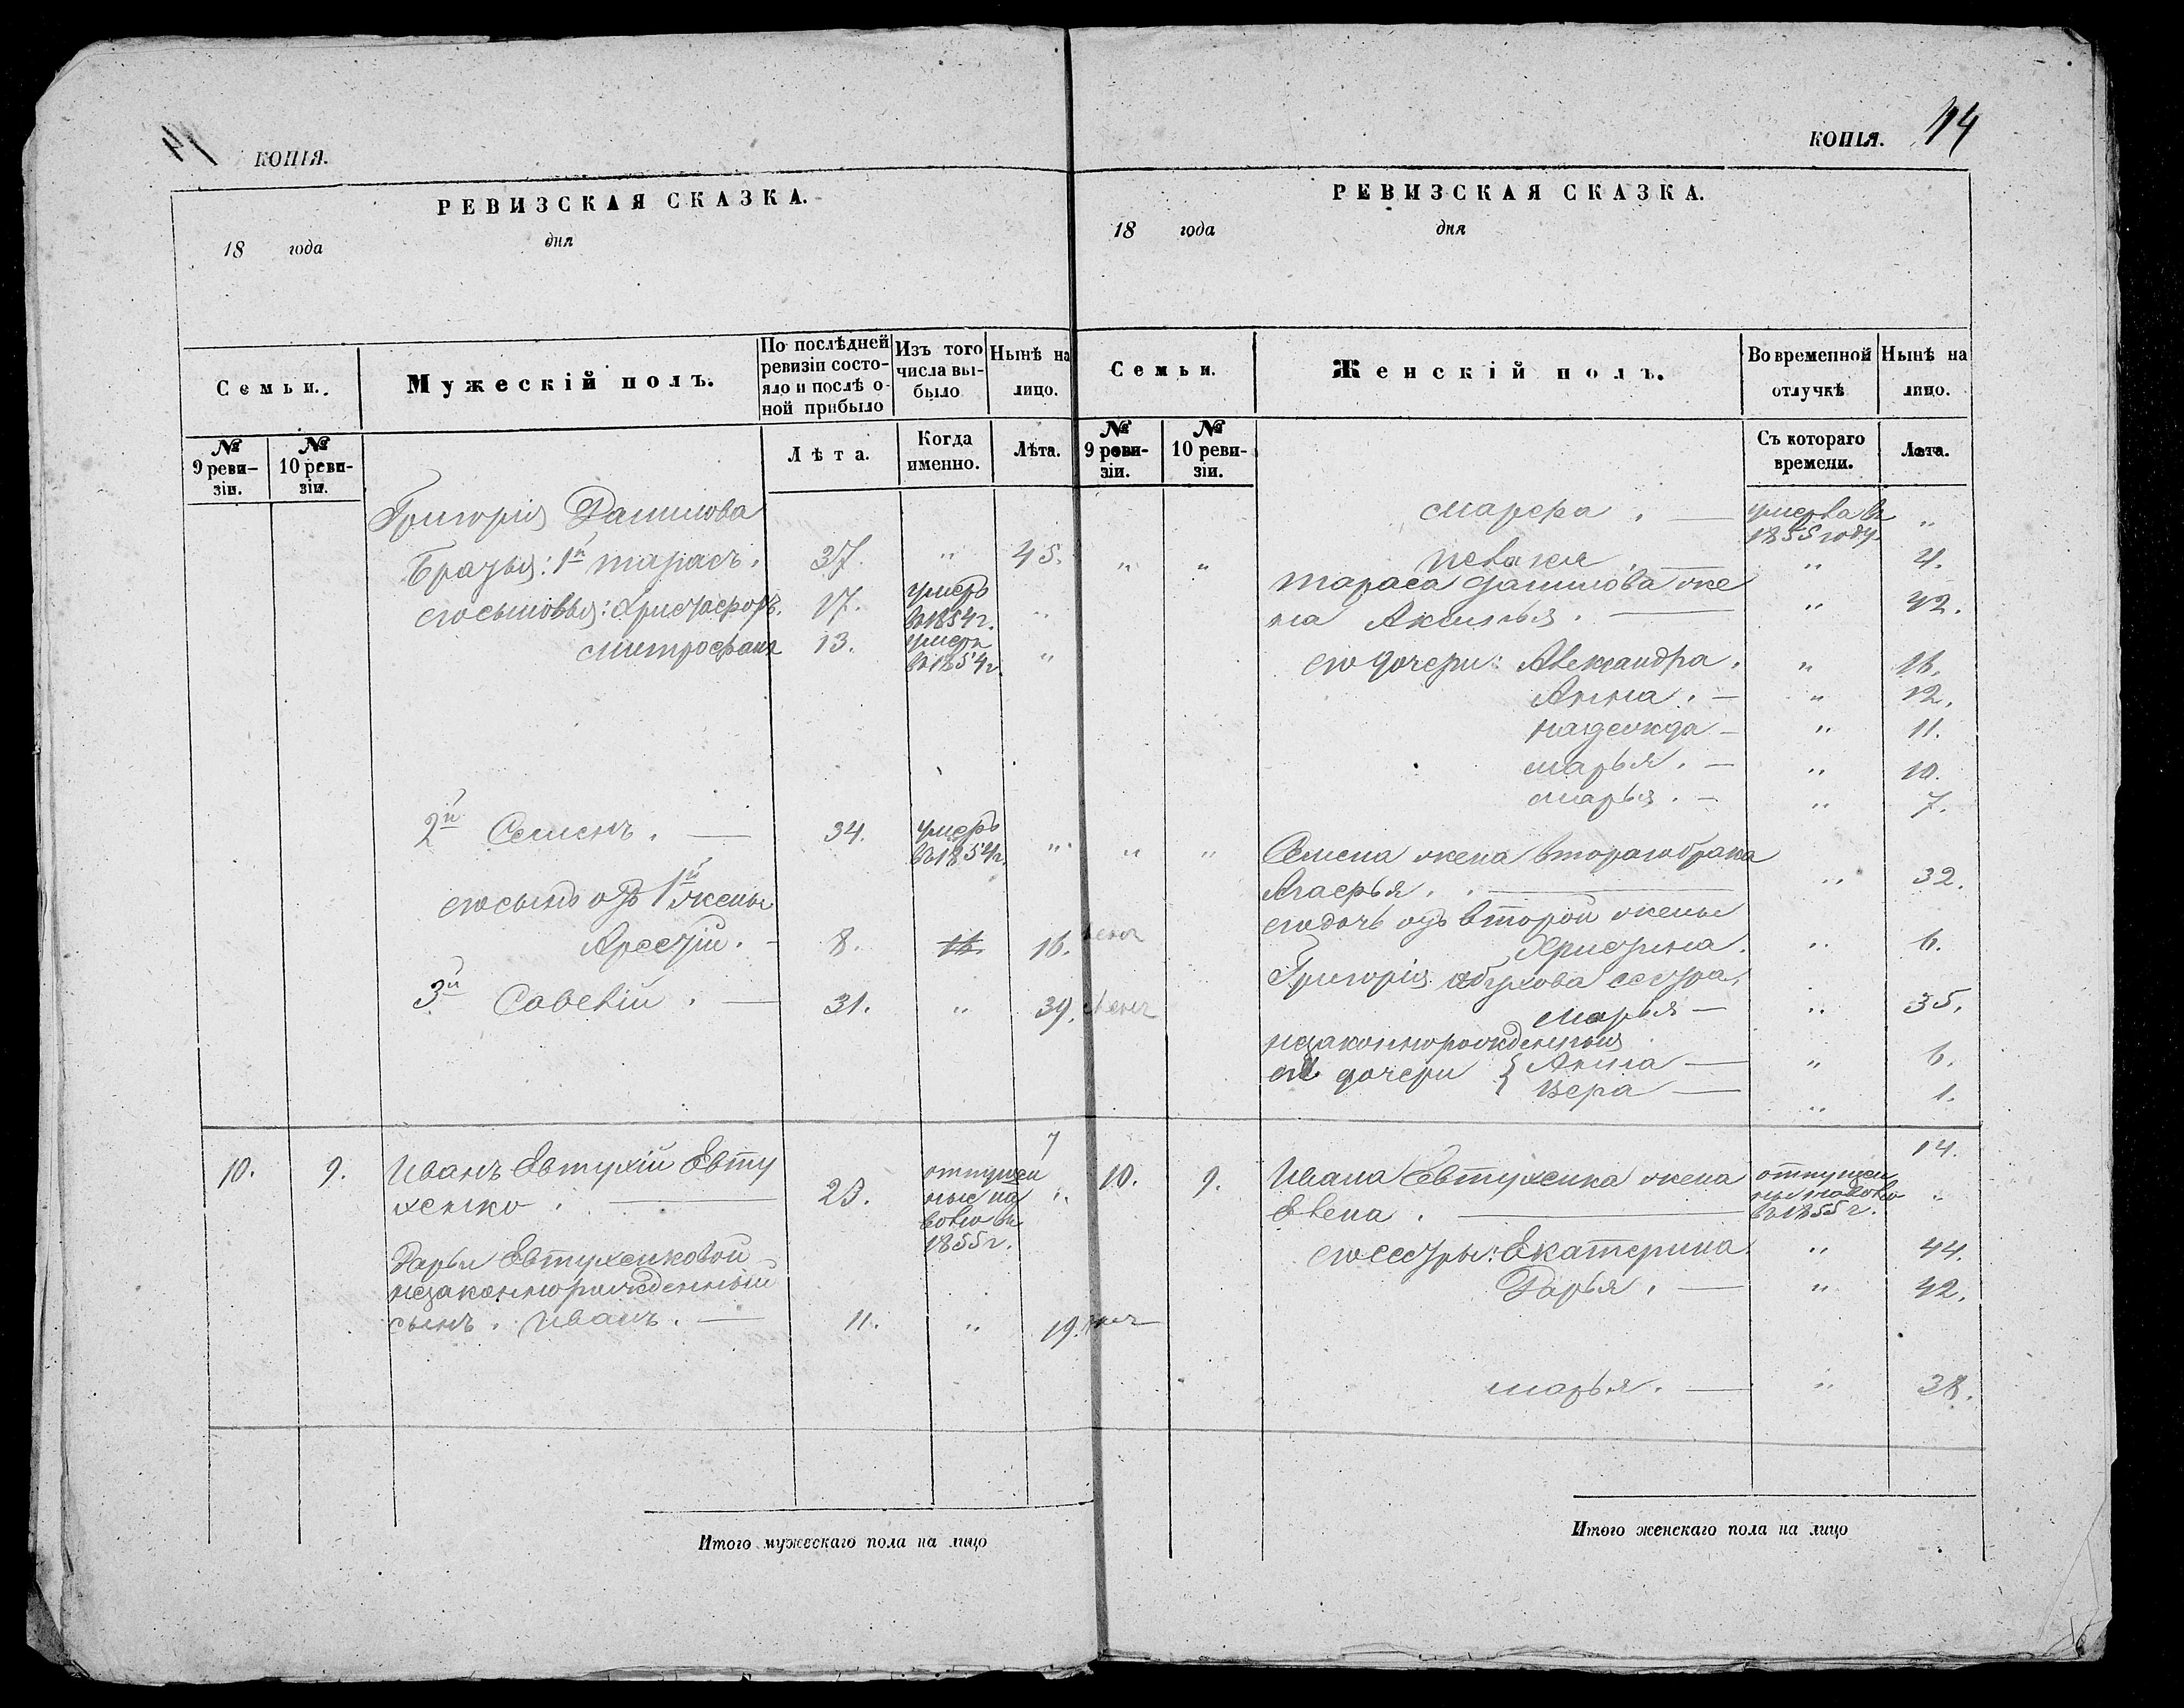 КОПІЯ.
РЕВИЗСКАЯ СКАЗКА.
18 года дня
Семьи. Мужескій полъ. По послѣдней ревизіи состояло и послѣ оной прибыло Изъ того числа выбыло Нынѣ на лицо.
№ 9 ревизіи. № 10 ревизіи. Лѣта. Когда именно. Лѣта.
Григорія Данилова
Братья: 1й Тарасъ. 37. " 45.
его сыновья: Христофоръ. 17. умеръ въ 1854 г. "
Митрофанъ 13. умеръ въ 1854 г. "
2й Семенъ. — 34. умеръ въ 1854 г. "
его сынъ отъ 1й жены
Арсетій. - 8. 16. 16.
3й Савелій. — 31. " 39.
7
10. 9. Иванъ Евтухій Евту
хенко. — 23. отпущенные на волю въ 1855 г. "
Дарьи Евтухенковой
незаконнорожденный
сынъ. Иванъ. — 11. " 19.
Итого мужескаго пола на лицо
КОПІЯ. 14
РЕВИЗСКАЯ СКАЗКА.
18 года дня
Семьи. Женскій полъ. Во временной отлучкѣ Нынѣ на лицо.
№ 9 ревизіи. № 10 ревизіи. Съ котораго времени. Лѣта.
Марфа. — умерла въ 1855 году. "
" " Пелагея. — " 4.
Тараса Данилова же
на Акилина. — " 42.
его дочери: Александра. " 16.
Анна. — " 12.
Надежда — " 11.
Марья. — " 10.
Марья. — " 7.
" " Семена жена втораго брака
Агафья. — " 32.
его дочь отъ второй жены
Христина. " 6.
Григорія Обухова сестра,
Марья — " 35.
незаконнорожденныя
ея дочери { Анна — " 6.
Вера — " 1.
14.
10. 9. Ивана Евтухенка жена
Елена. — отпущены на волю въ 1855 г. "
его сестры: Екатерина. " 44.
Дарья. — " 42.
Марья. — " 38.
Итого женскаго пола на лицо